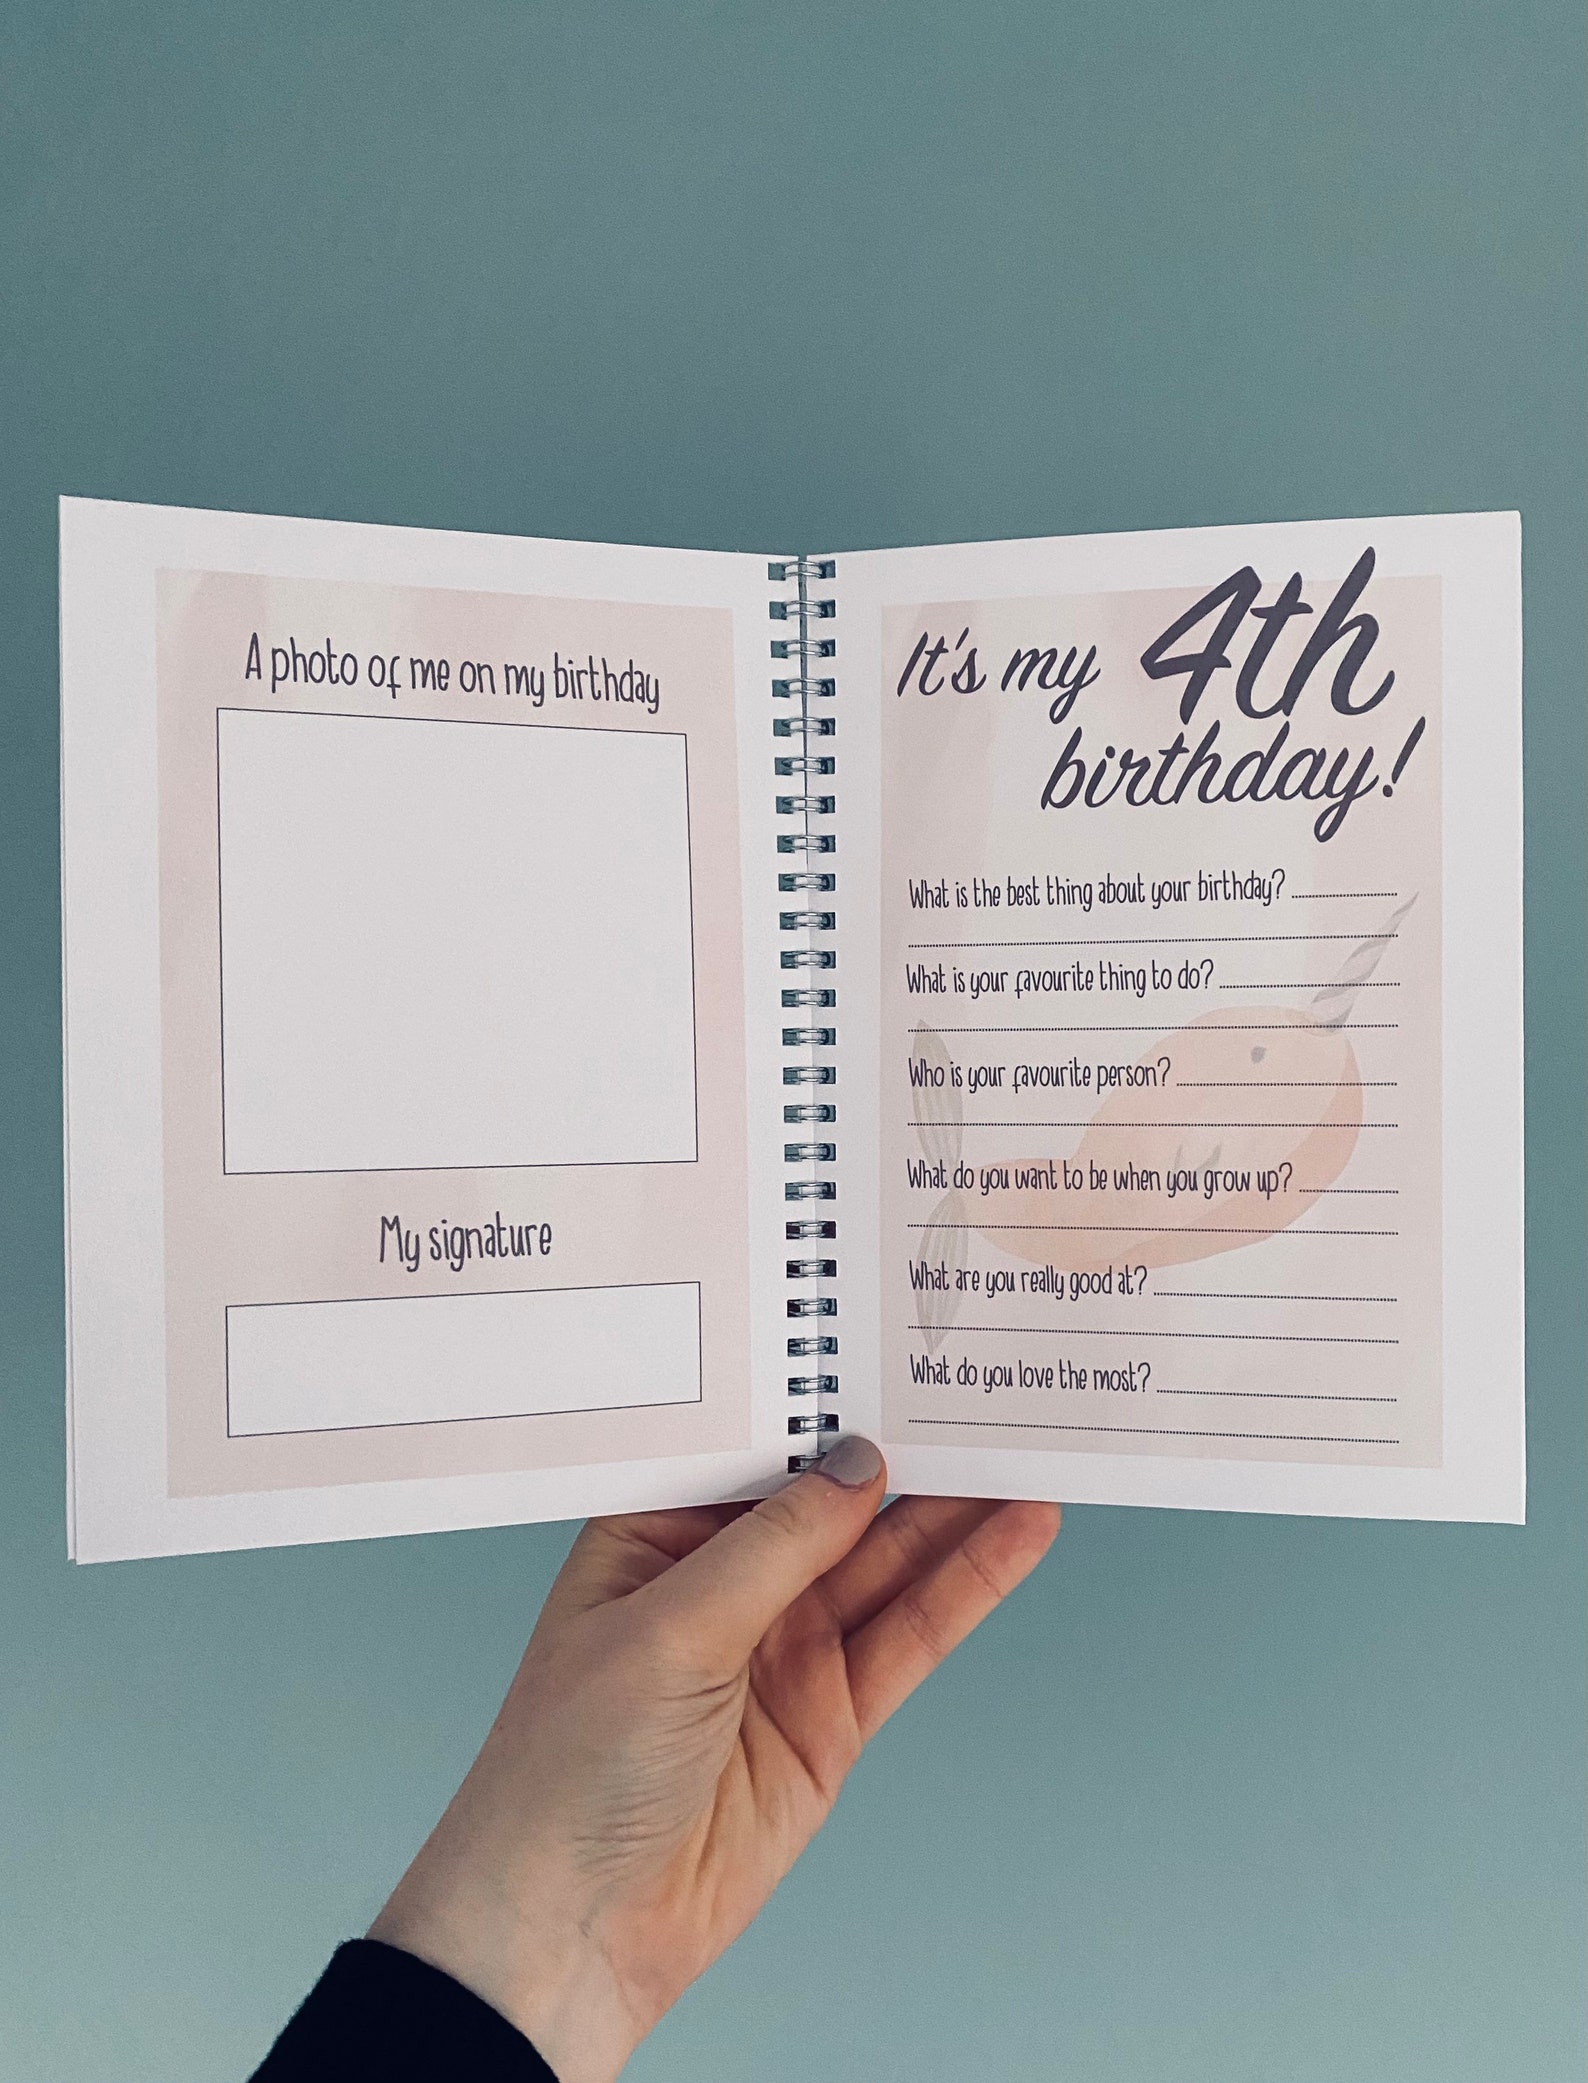 A photo of me on my birthday
My signature
It's my 4th
birthday!
What is the best thing about your birthday?
What is your favourite thing to do?
Who is your favourite person?
What do you want to be when you grow up?
What are you really good at?
What do you love the most?